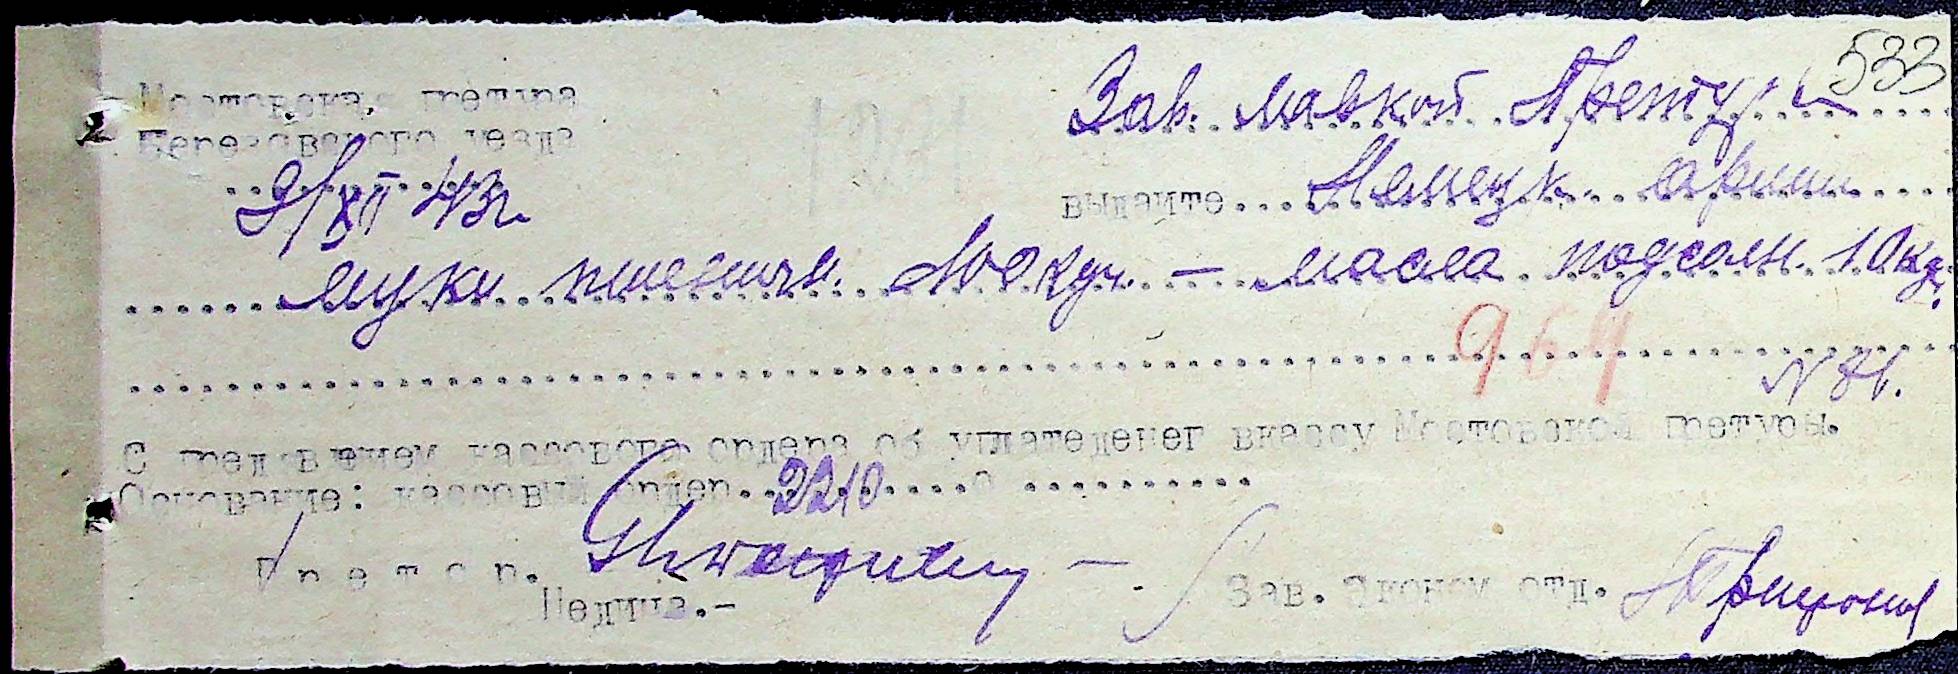 533
Мостовская претура
Березовского уезда
9/XII 43г.
Зав. лавкой Претуры
выдайте... Немецк. армии
муки пшеничн. 100 кгр. — масла подсолн. 10 кг.
964
N 76.
С пред'явением кассового ордера об уплатеденег вкассу Мостовской претуры.
Основание: кассовый ордер... 2210
Претор.
Зав. Эконом отд.